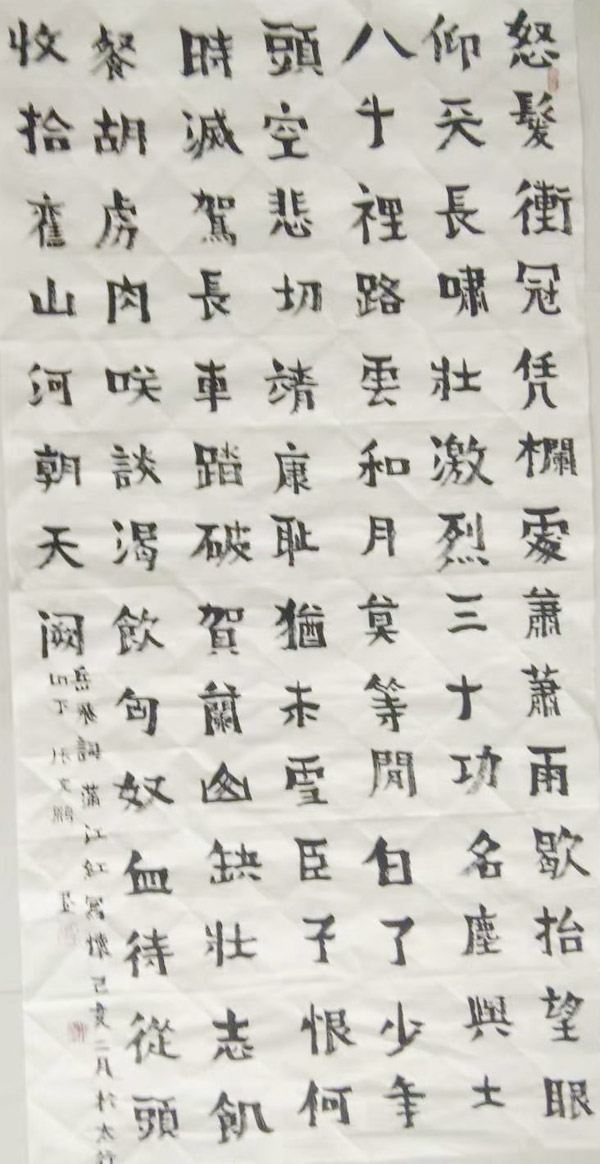 怒髮衝冠凭欄處蕭蕭雨歇抬望眼
仰天長嘯壯激烈三十功名塵與土
八千裡路雲和月莫等閒白了少年
頭空悲切靖康耻猶未雪臣子恨何
時滅駕長車踏破賀蘭山缺壯志飢
餐胡虜肉咲談渴飲匈奴血待從頭
收拾舊山河朝天闕
岳飛詞滿江紅寫懷己亥二月於太行
山下張文鵬